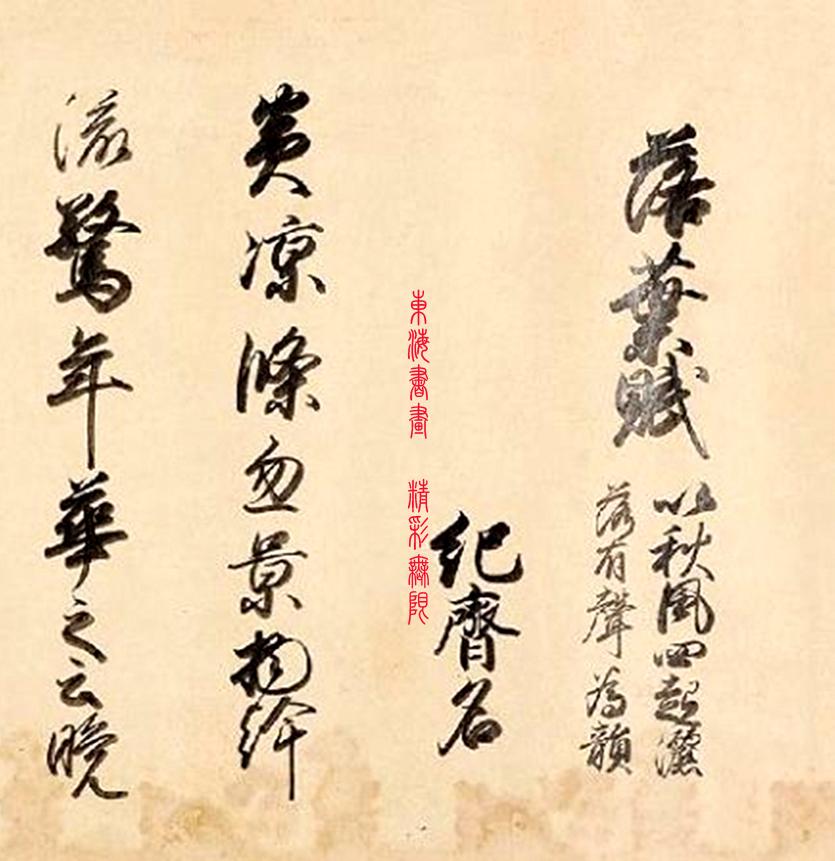 落葉賦
以秋風四起灑
落有聲為韻
紀齊名
東海書畫 精彩無限
炎涼倏忽景物紛
流驚年華之云晚